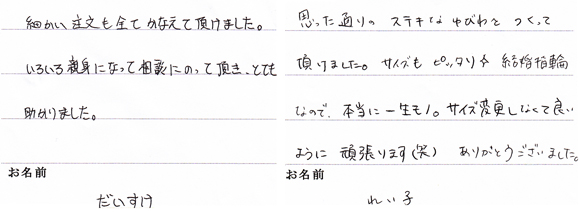 細かい注文も全てかなえて頂けました。
いろいろ親身になって相談にのって頂き、とても
助かりました。
お名前
だいすけ
思った通りの ステキなゆびわを つくって
頂けました。サイズも ピッタリ♪ 結婚指輪
なので、本当に一生モノ。サイズ変更しなくて良い
ように 頑張ります(笑) ありがとうございました。
お名前
れい子